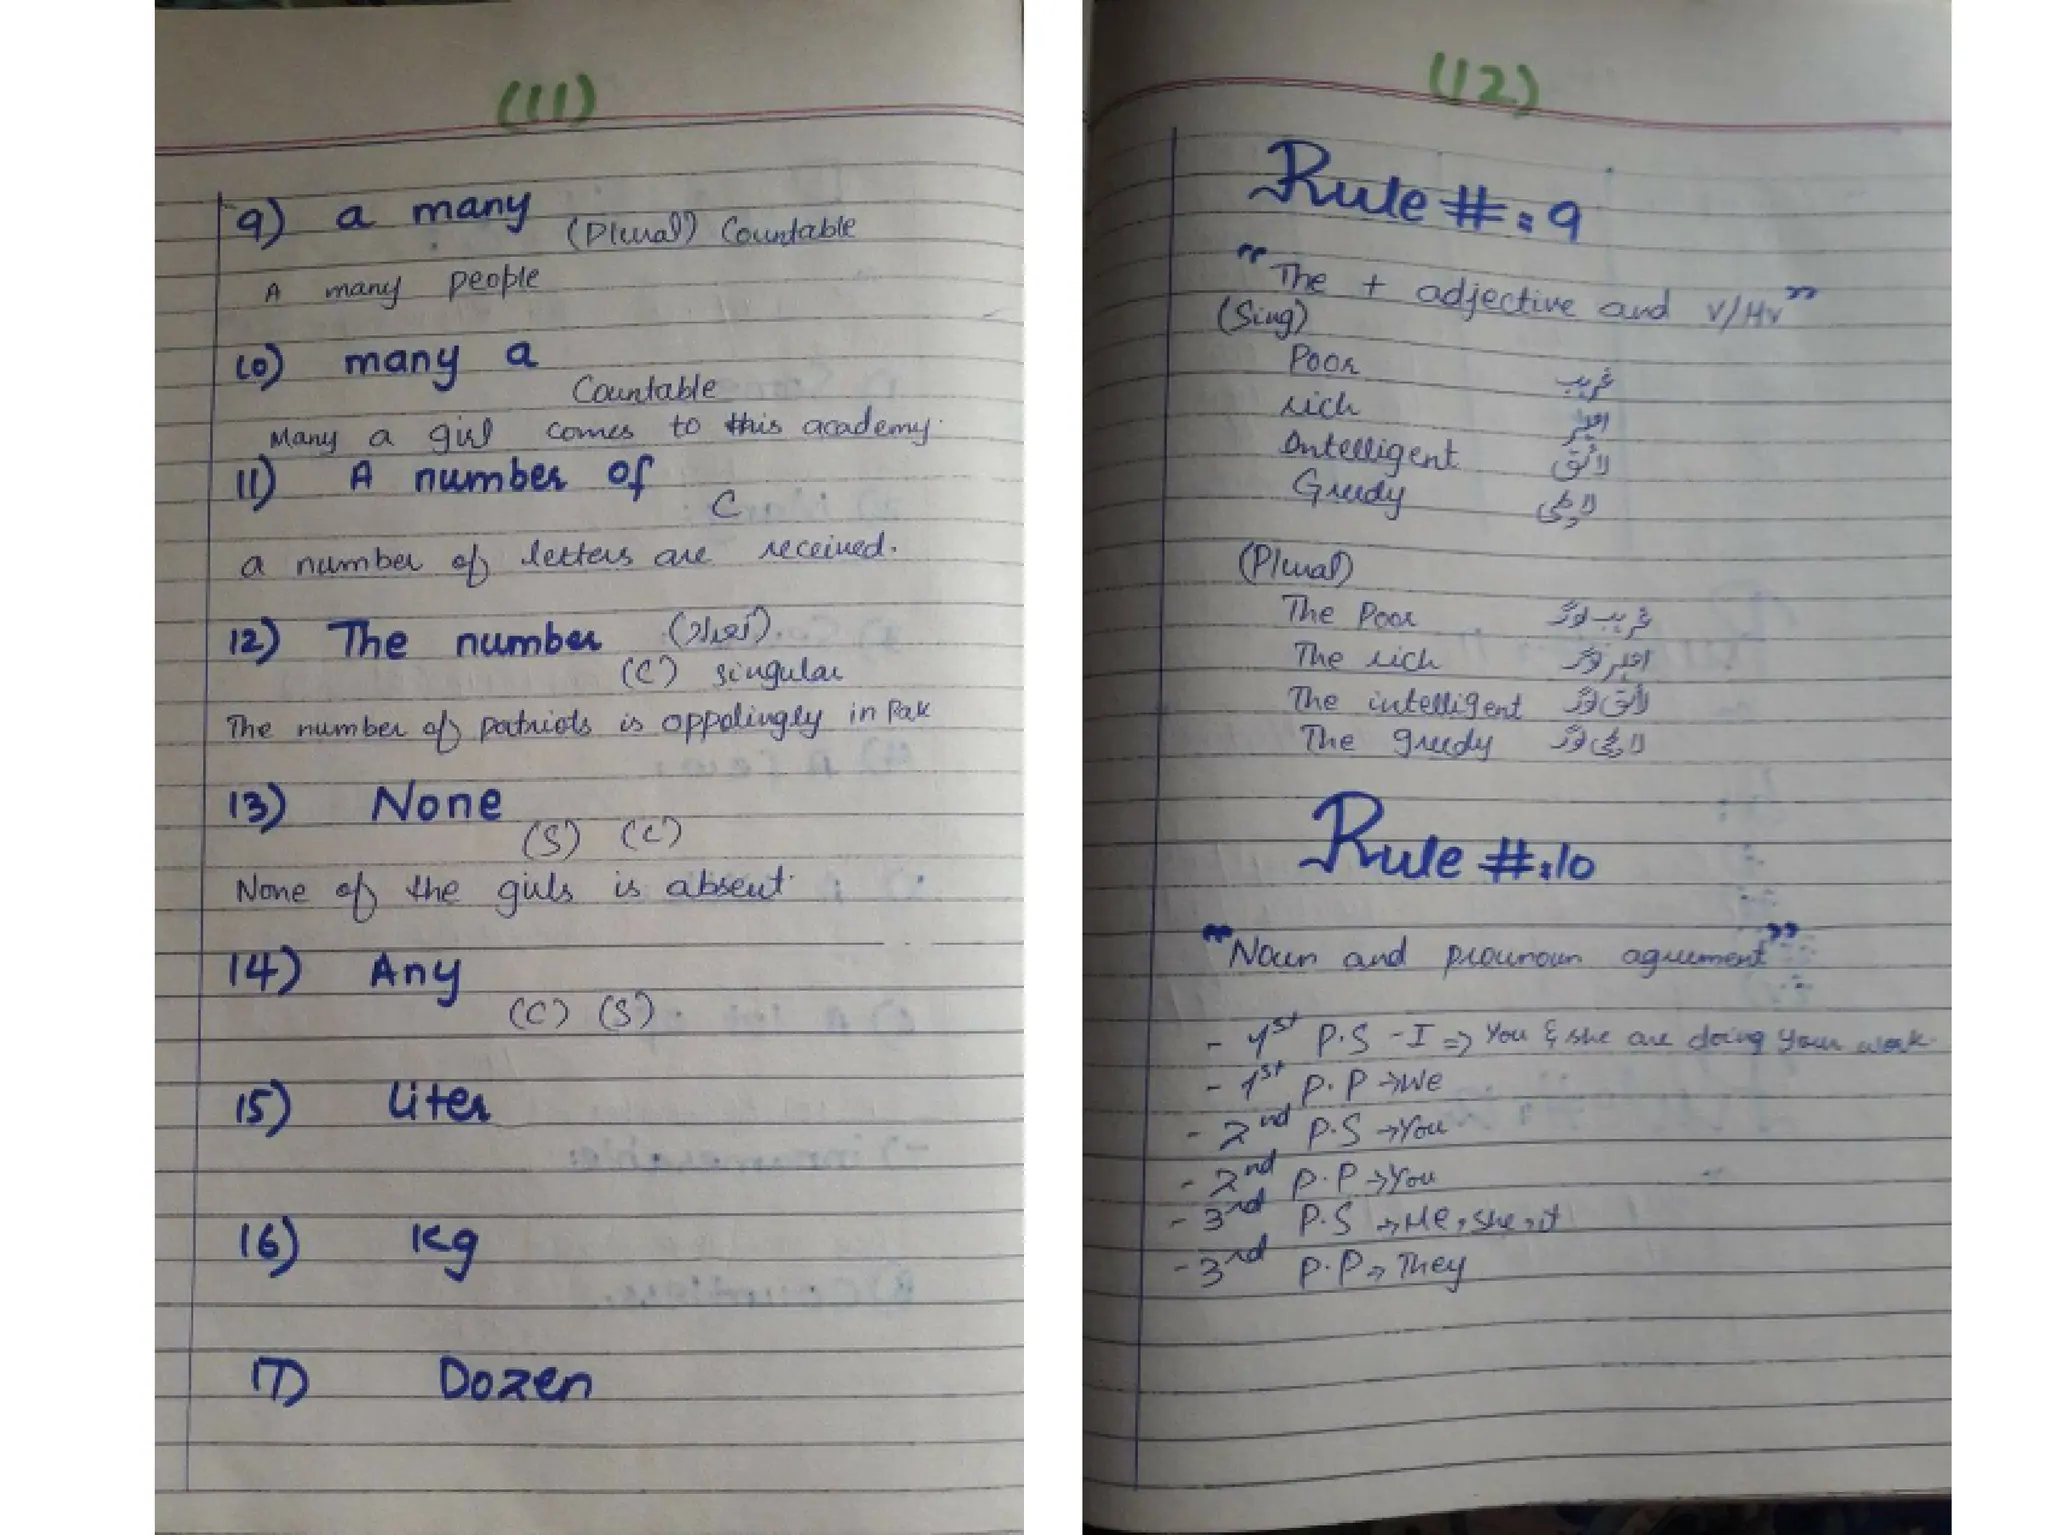 (11)
9) a many
(Plural) Countable
A many people
10) many a
Countable
Many a girl comes to this academy.
11) A number of
C
a number of letters are received.
12) The number (تعداد)
(C) singular
The number of patriots is appalingly in Pak
13) None
(S) (C)
None of the girls is absent.
14) Any
(C) (S)
15) liter
16) Kg
17) Dozen
(12)
Rule #:9
"The + adjective and V/Hv"
(Sing)
Poor غریب
rich امیر
Intelligent لائق
Greedy لالچی
(Plural)
The Poor غریب لوگ
The rich امیر لوگ
The intelligent لائق لوگ
The greedy لالچی لوگ
Rule #:10
"Noun and pronoun agreement"
- 1st P.S - I => You & she are doing your work.
- 1st P.P → We
- 2nd P.S → You
- 2nd P.P → You
- 3rd P.S → He, she, it
- 3rd P.P → They